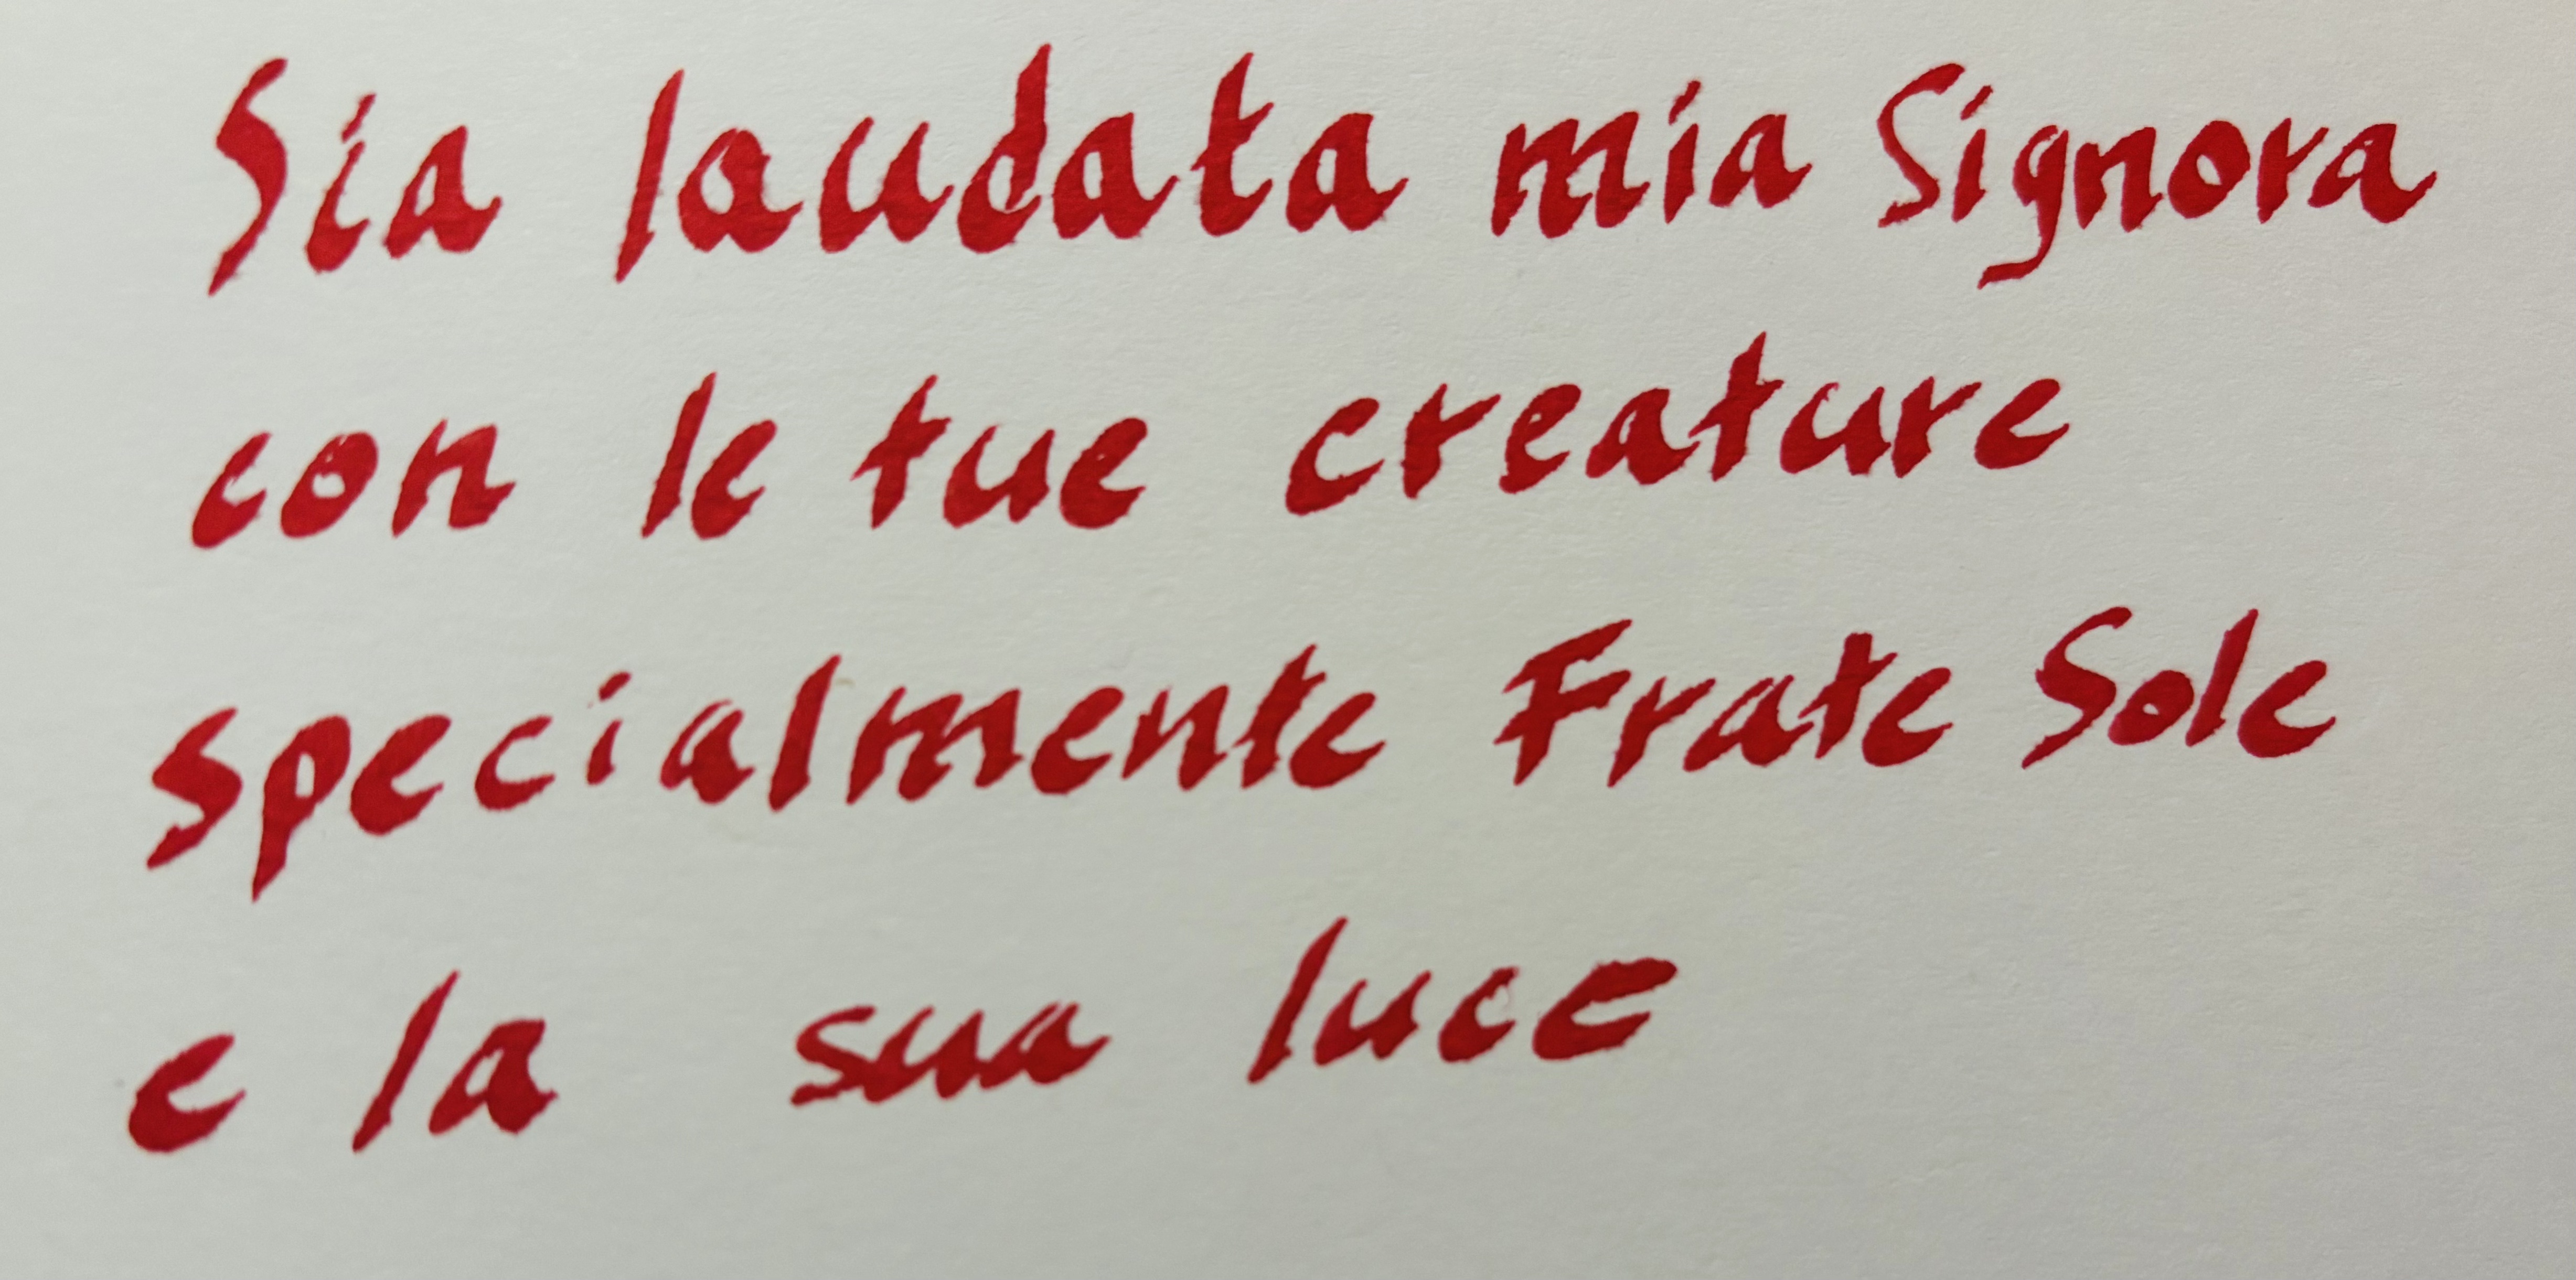 Sia laudata mia Signora
con le tue creature
specialmente Frate Sole
e la sua luce